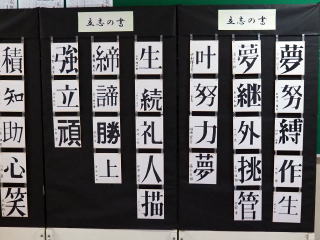 立志の書
夢努縛作生
夢継外挑管
叶努力夢
立志の書
生続礼人描
締諦勝上
強立頑
積知助心笑